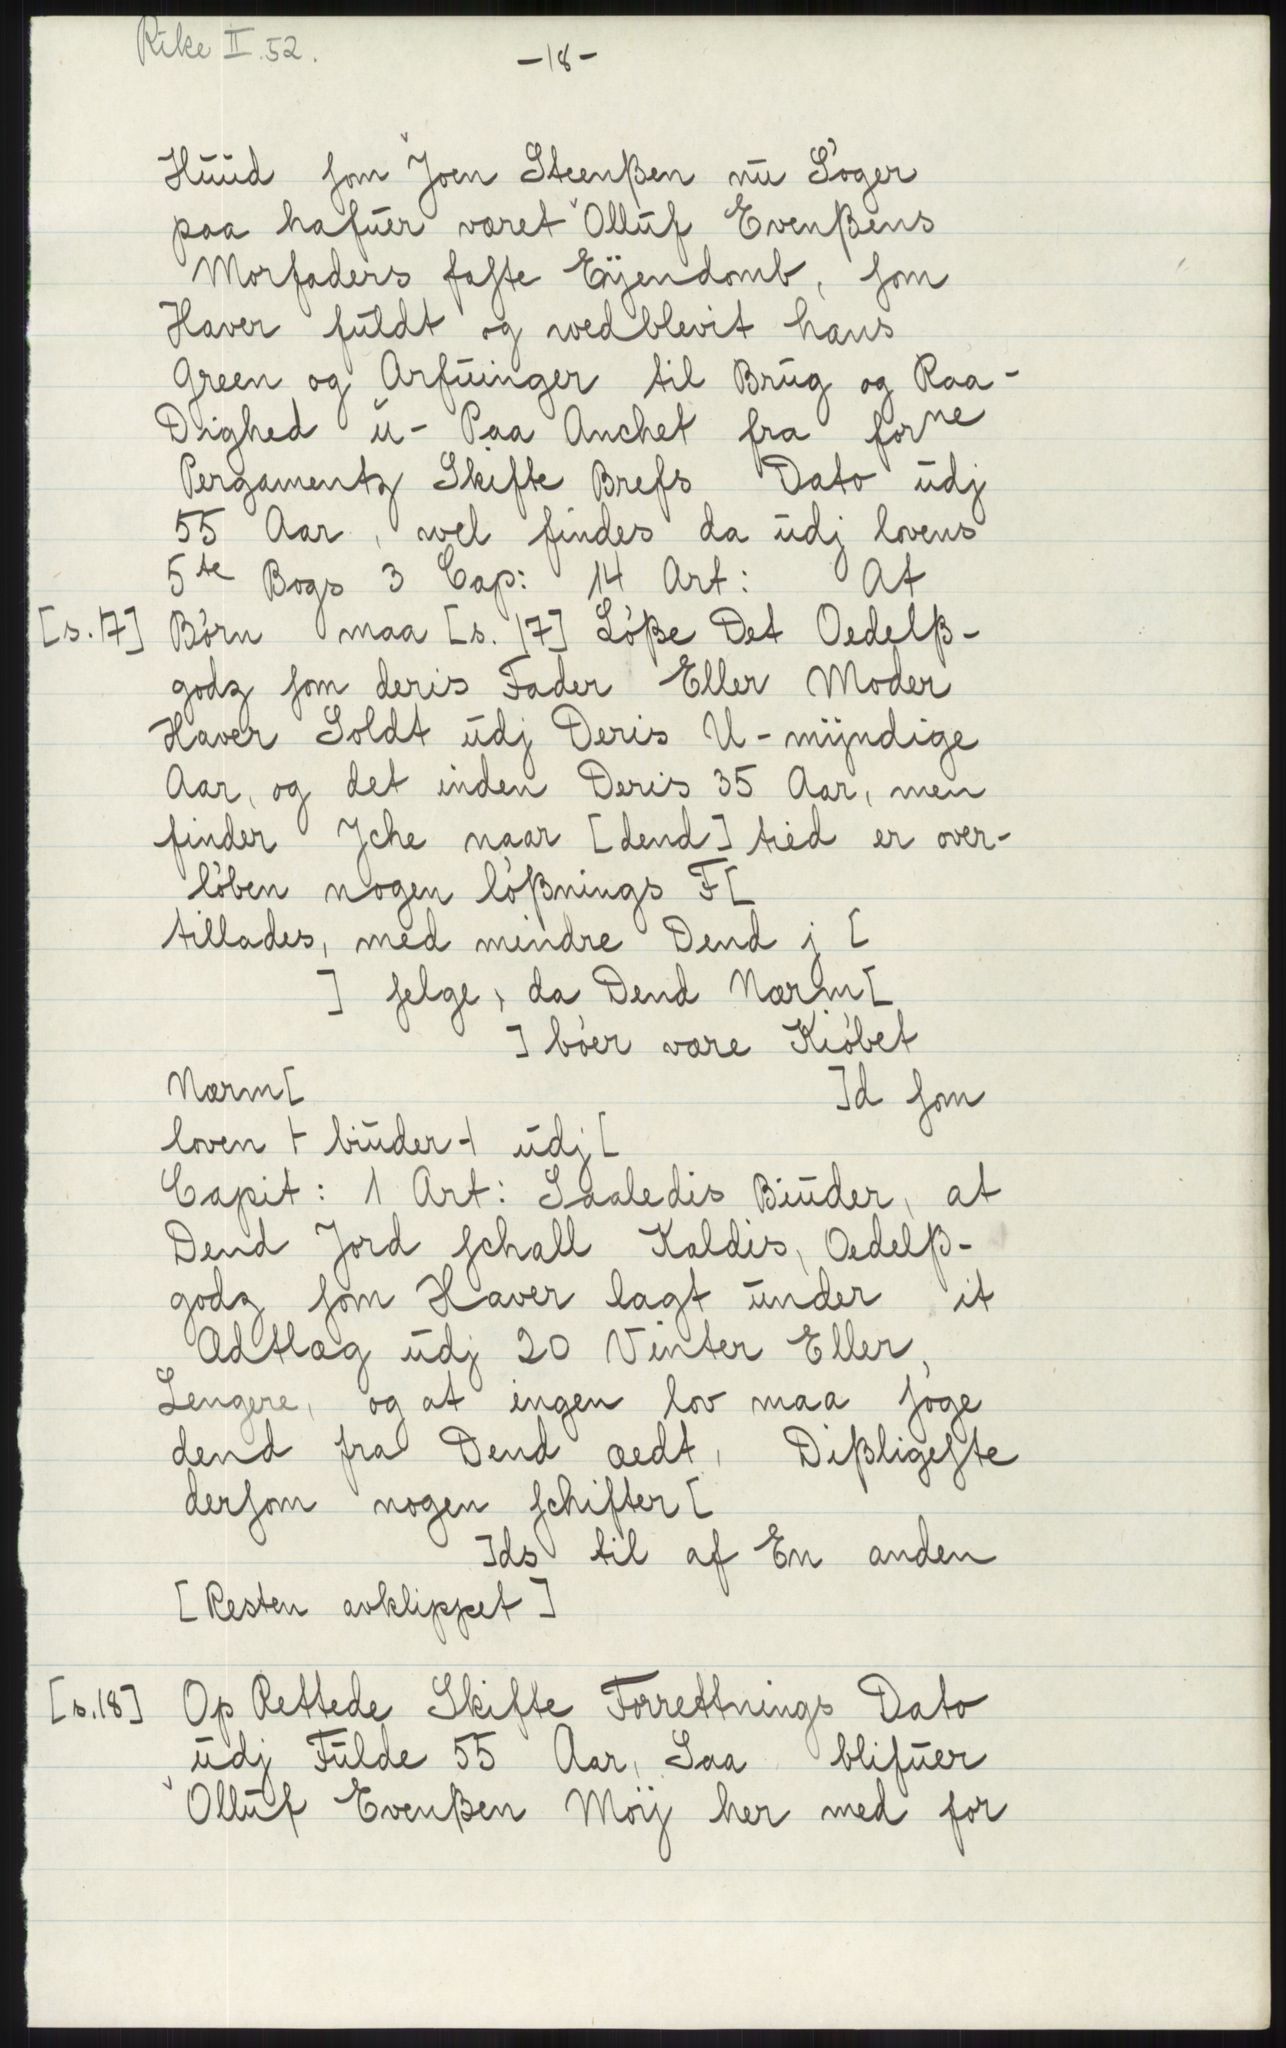 Rike II. 52.
-18-
Huud som Joen Steenßen nu Søger
paa hafuer været Olluf Evenßens
Morfaders faste Eÿendomb, som
Haver fuldt og wedblevit hans
Green og Arfuinger til Brug og Raa-
Dighed u- Paa Anchet fra forne
Pergamentz Skifte Brefs Dato udj
55 Aar, wel findes da udj lovens
5te Bogs 3 Cap: 14 Art: At
[s. 17] Børn maa [s. 17] Løße Det Oedelß-
godz som deris Fader Eller Moder
Haver Soldt udj Deris U-mÿndige
Aar, og det inden Deris 35 Aar, men
finder Jche naar [dend] tied er over-
løben nogen løßnings F[
tillades, med mindre Dend j [
] selge, da Dend Nærm[
] bøer være Kiøbet
Nærm[ ]d som
loven ⊢ biuder ⊣ udj [
Capit: 1 Art: Saaledis Biuder, at
Dend Jord schall Kaldis, Oedelß-
godz som Haver lagt under it
Ædtlæg udj 20 Vinter Eller,
Lengere, og at ingen lov maa søge
dend fra Dend ædt, Dißligeste
dersom nogen schifter [
]ds til af En anden
[Resten avklippet]
[s. 18] Op Rettede Skifte Forrettnings Dato
udj Fulde 55 Aar, Saa blifuer
Olluf Evenßen Moÿ her med for